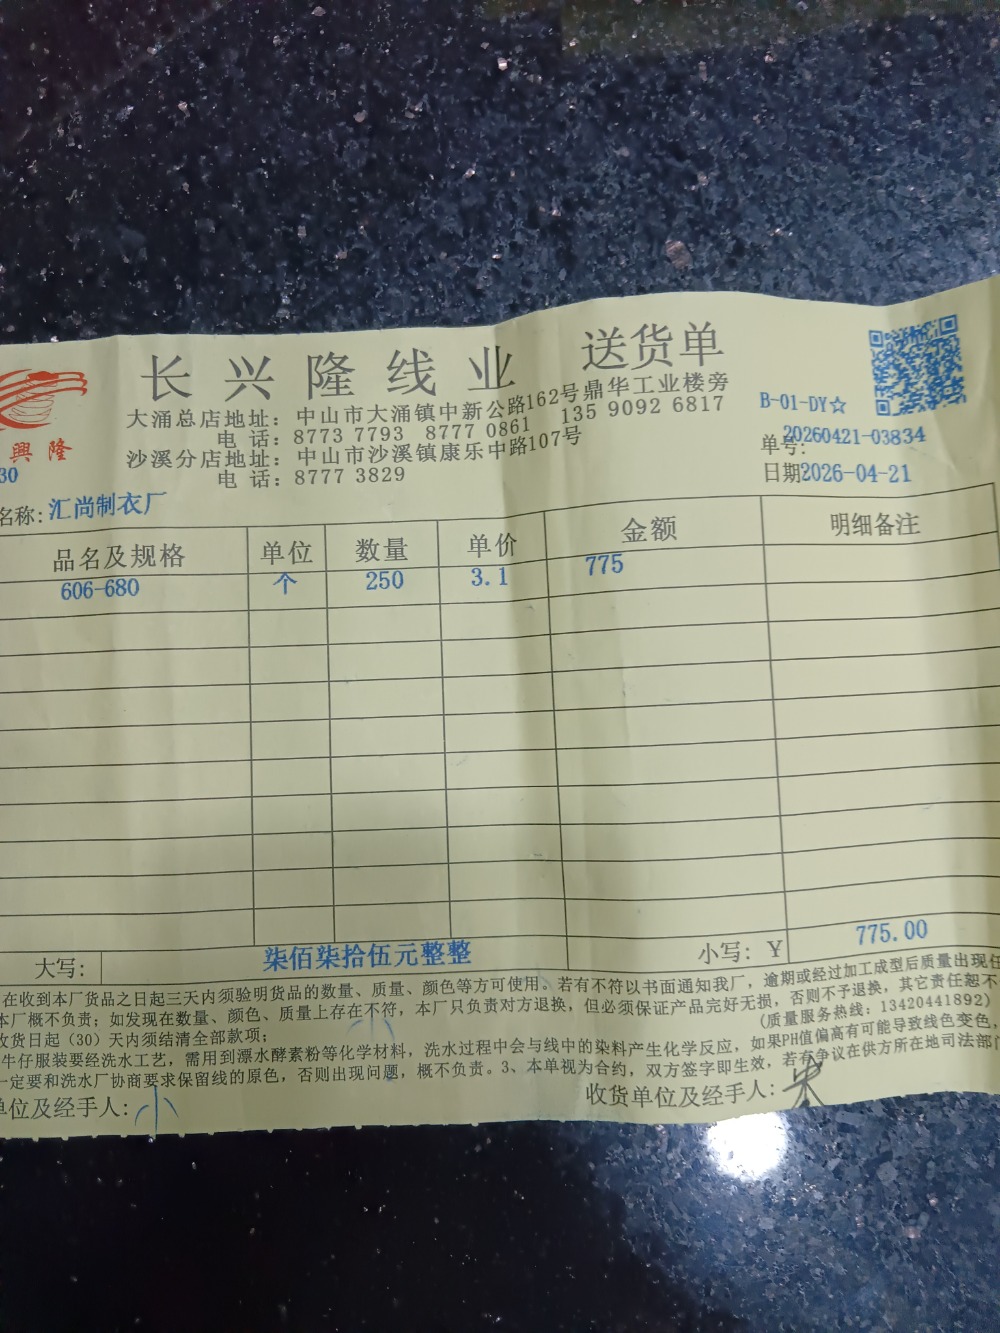 长兴隆线业 送货单
興隆
大涌总店地址：中山市大涌镇中新公路162号鼎华工业楼旁
电 话：8773 7793 8777 0861 135 9092 6817
沙溪分店地址：中山市沙溪镇康乐中路107号
电 话：8777 3829
B-01-DY☆
单号：20260421-03834
日期2026-04-21
30
名称：汇尚制衣厂
品名及规格 单位 数量 单价 金额 明细备注
606-680 个 250 3.1 775
大写： 柒佰柒拾伍元整整 小写：￥ 775.00
在收到本厂货品之日起三天内须验明货品的数量、质量、颜色等方可使用。若有不符以书面通知我厂，逾期或经过加工成型后质量出现任
本厂概不负责；如发现在数量、颜色、质量上存在不符，本厂只负责对方退换，但必须保证产品完好无损，否则不予退换，其它责任恕不
收货日起（30）天内须结清全部款项； （质量服务热线：13420441892）
牛仔服装要经洗水工艺，需用到漂水酵素粉等化学材料，洗水过程中会与线中的染料产生化学反应，如果PH值偏高有可能导致线色变色，
一定要和洗水厂协商要求保留线的原色，否则出现问题，概不负责。3、本单视为合约，双方签字即生效，若有争议在供方所在地司法部门
单位及经手人：小 收货单位及经手人：